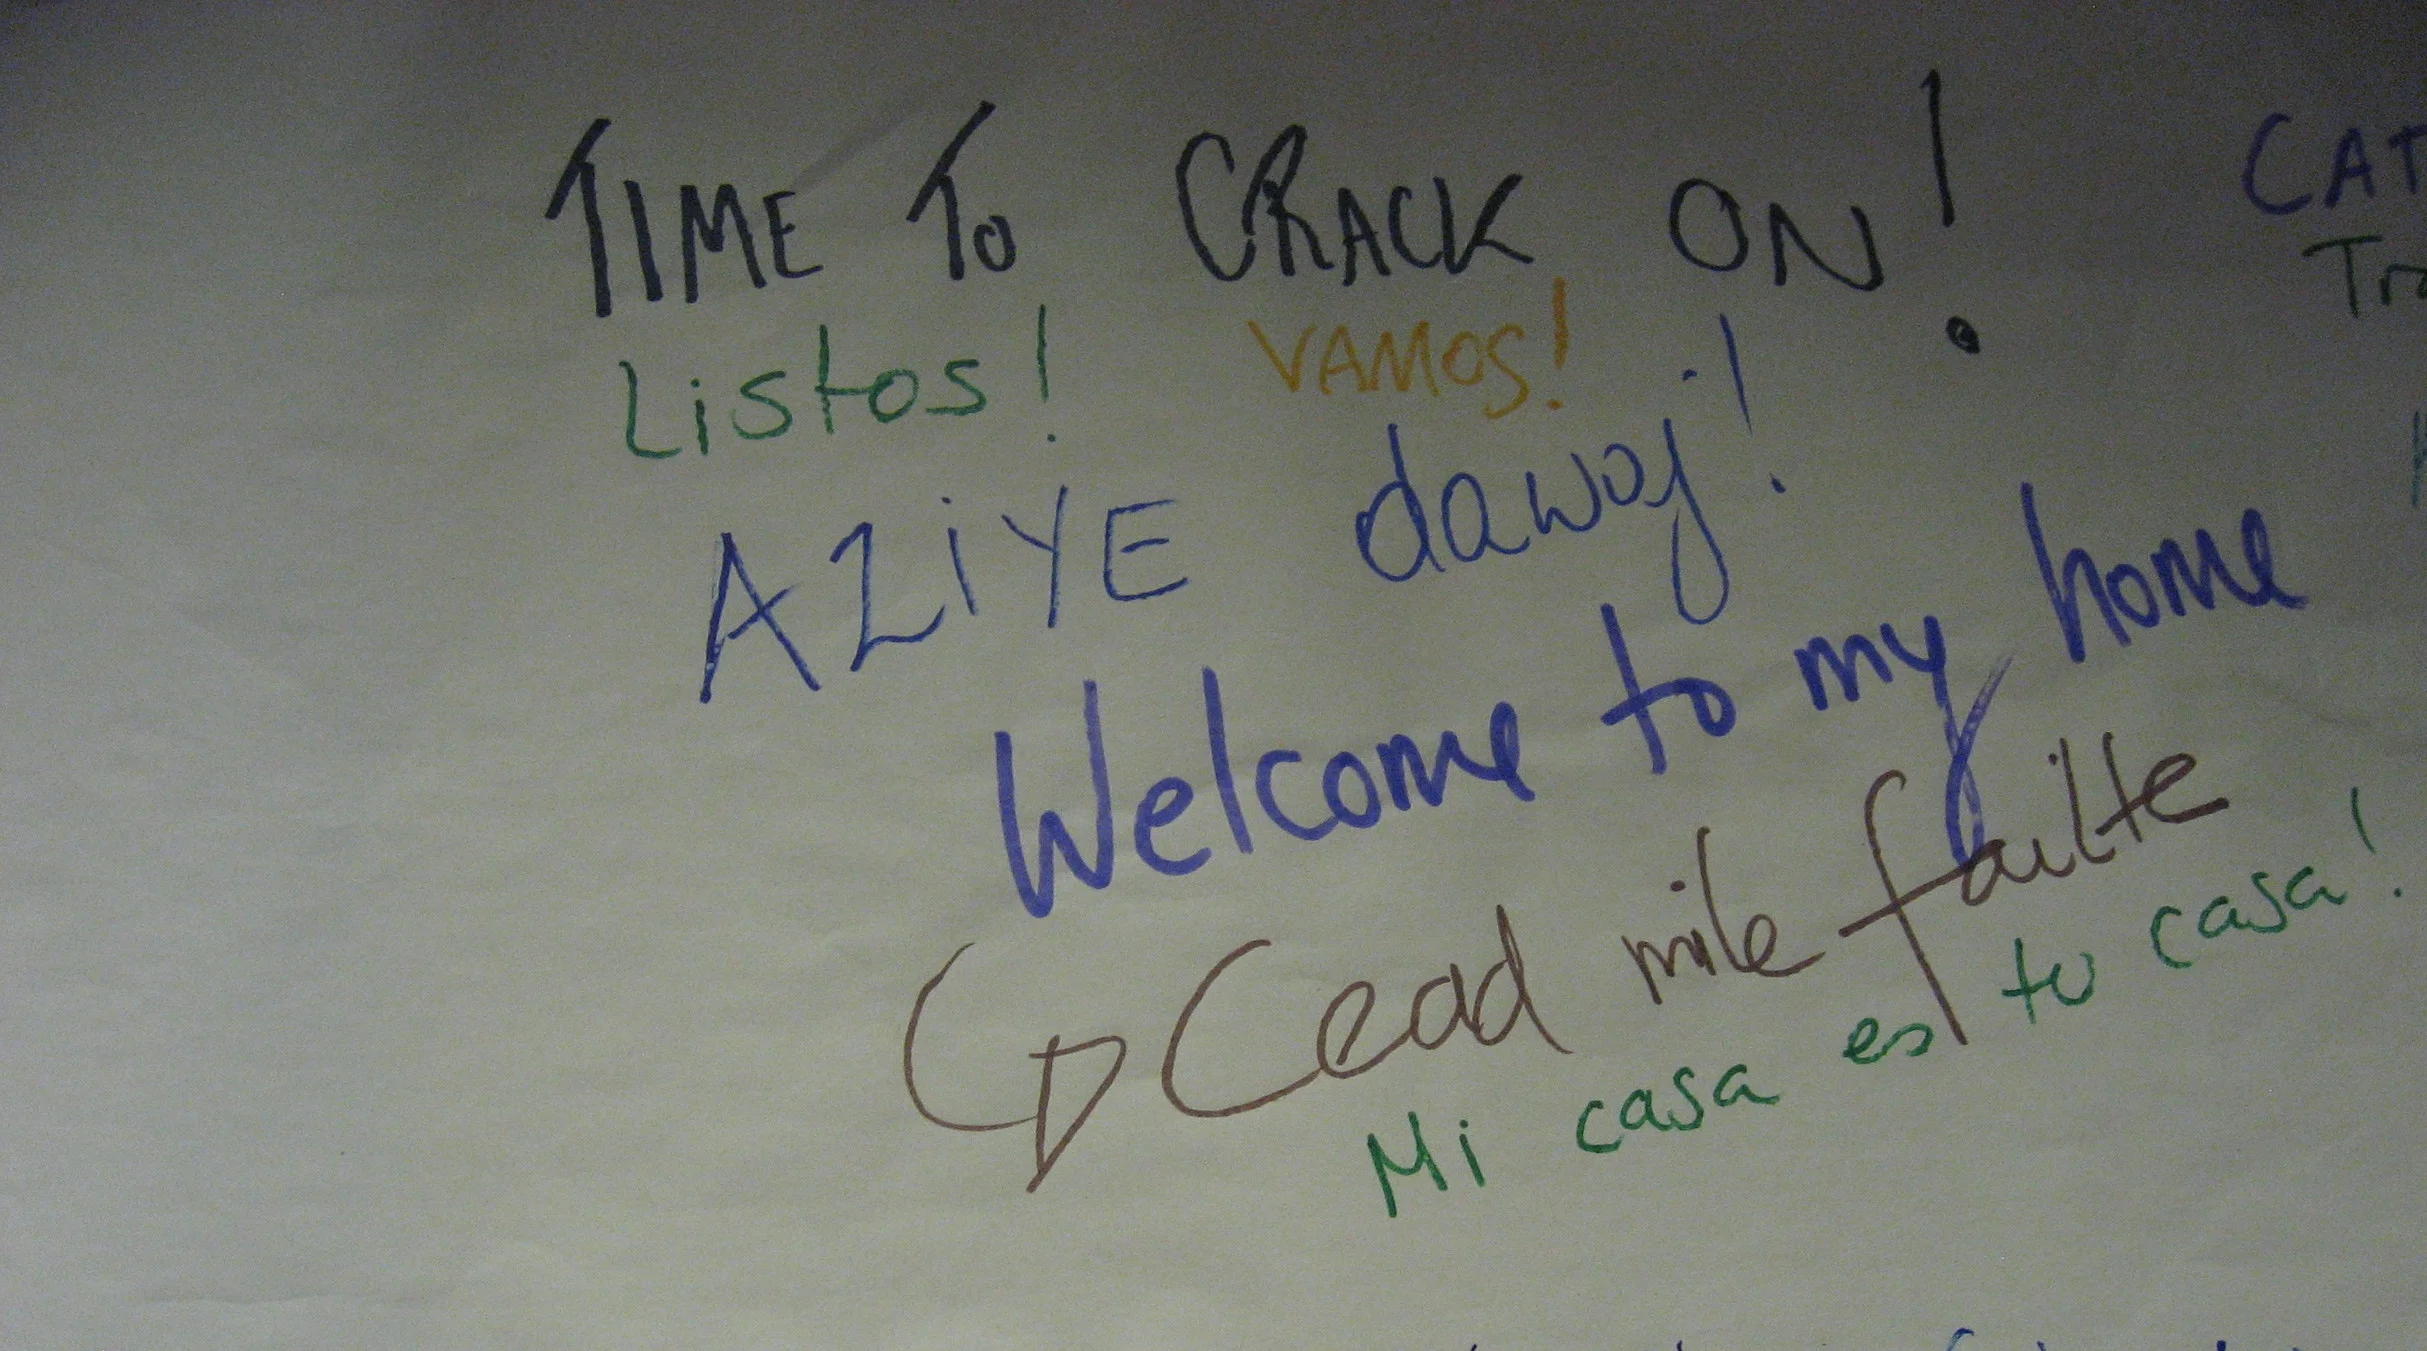 TIME TO CRACK ON!
CAT
Listos! VAMOS!
AZiYE dawaj!
Welcome to my home
Cead mile failte
Mi casa es tu casa!